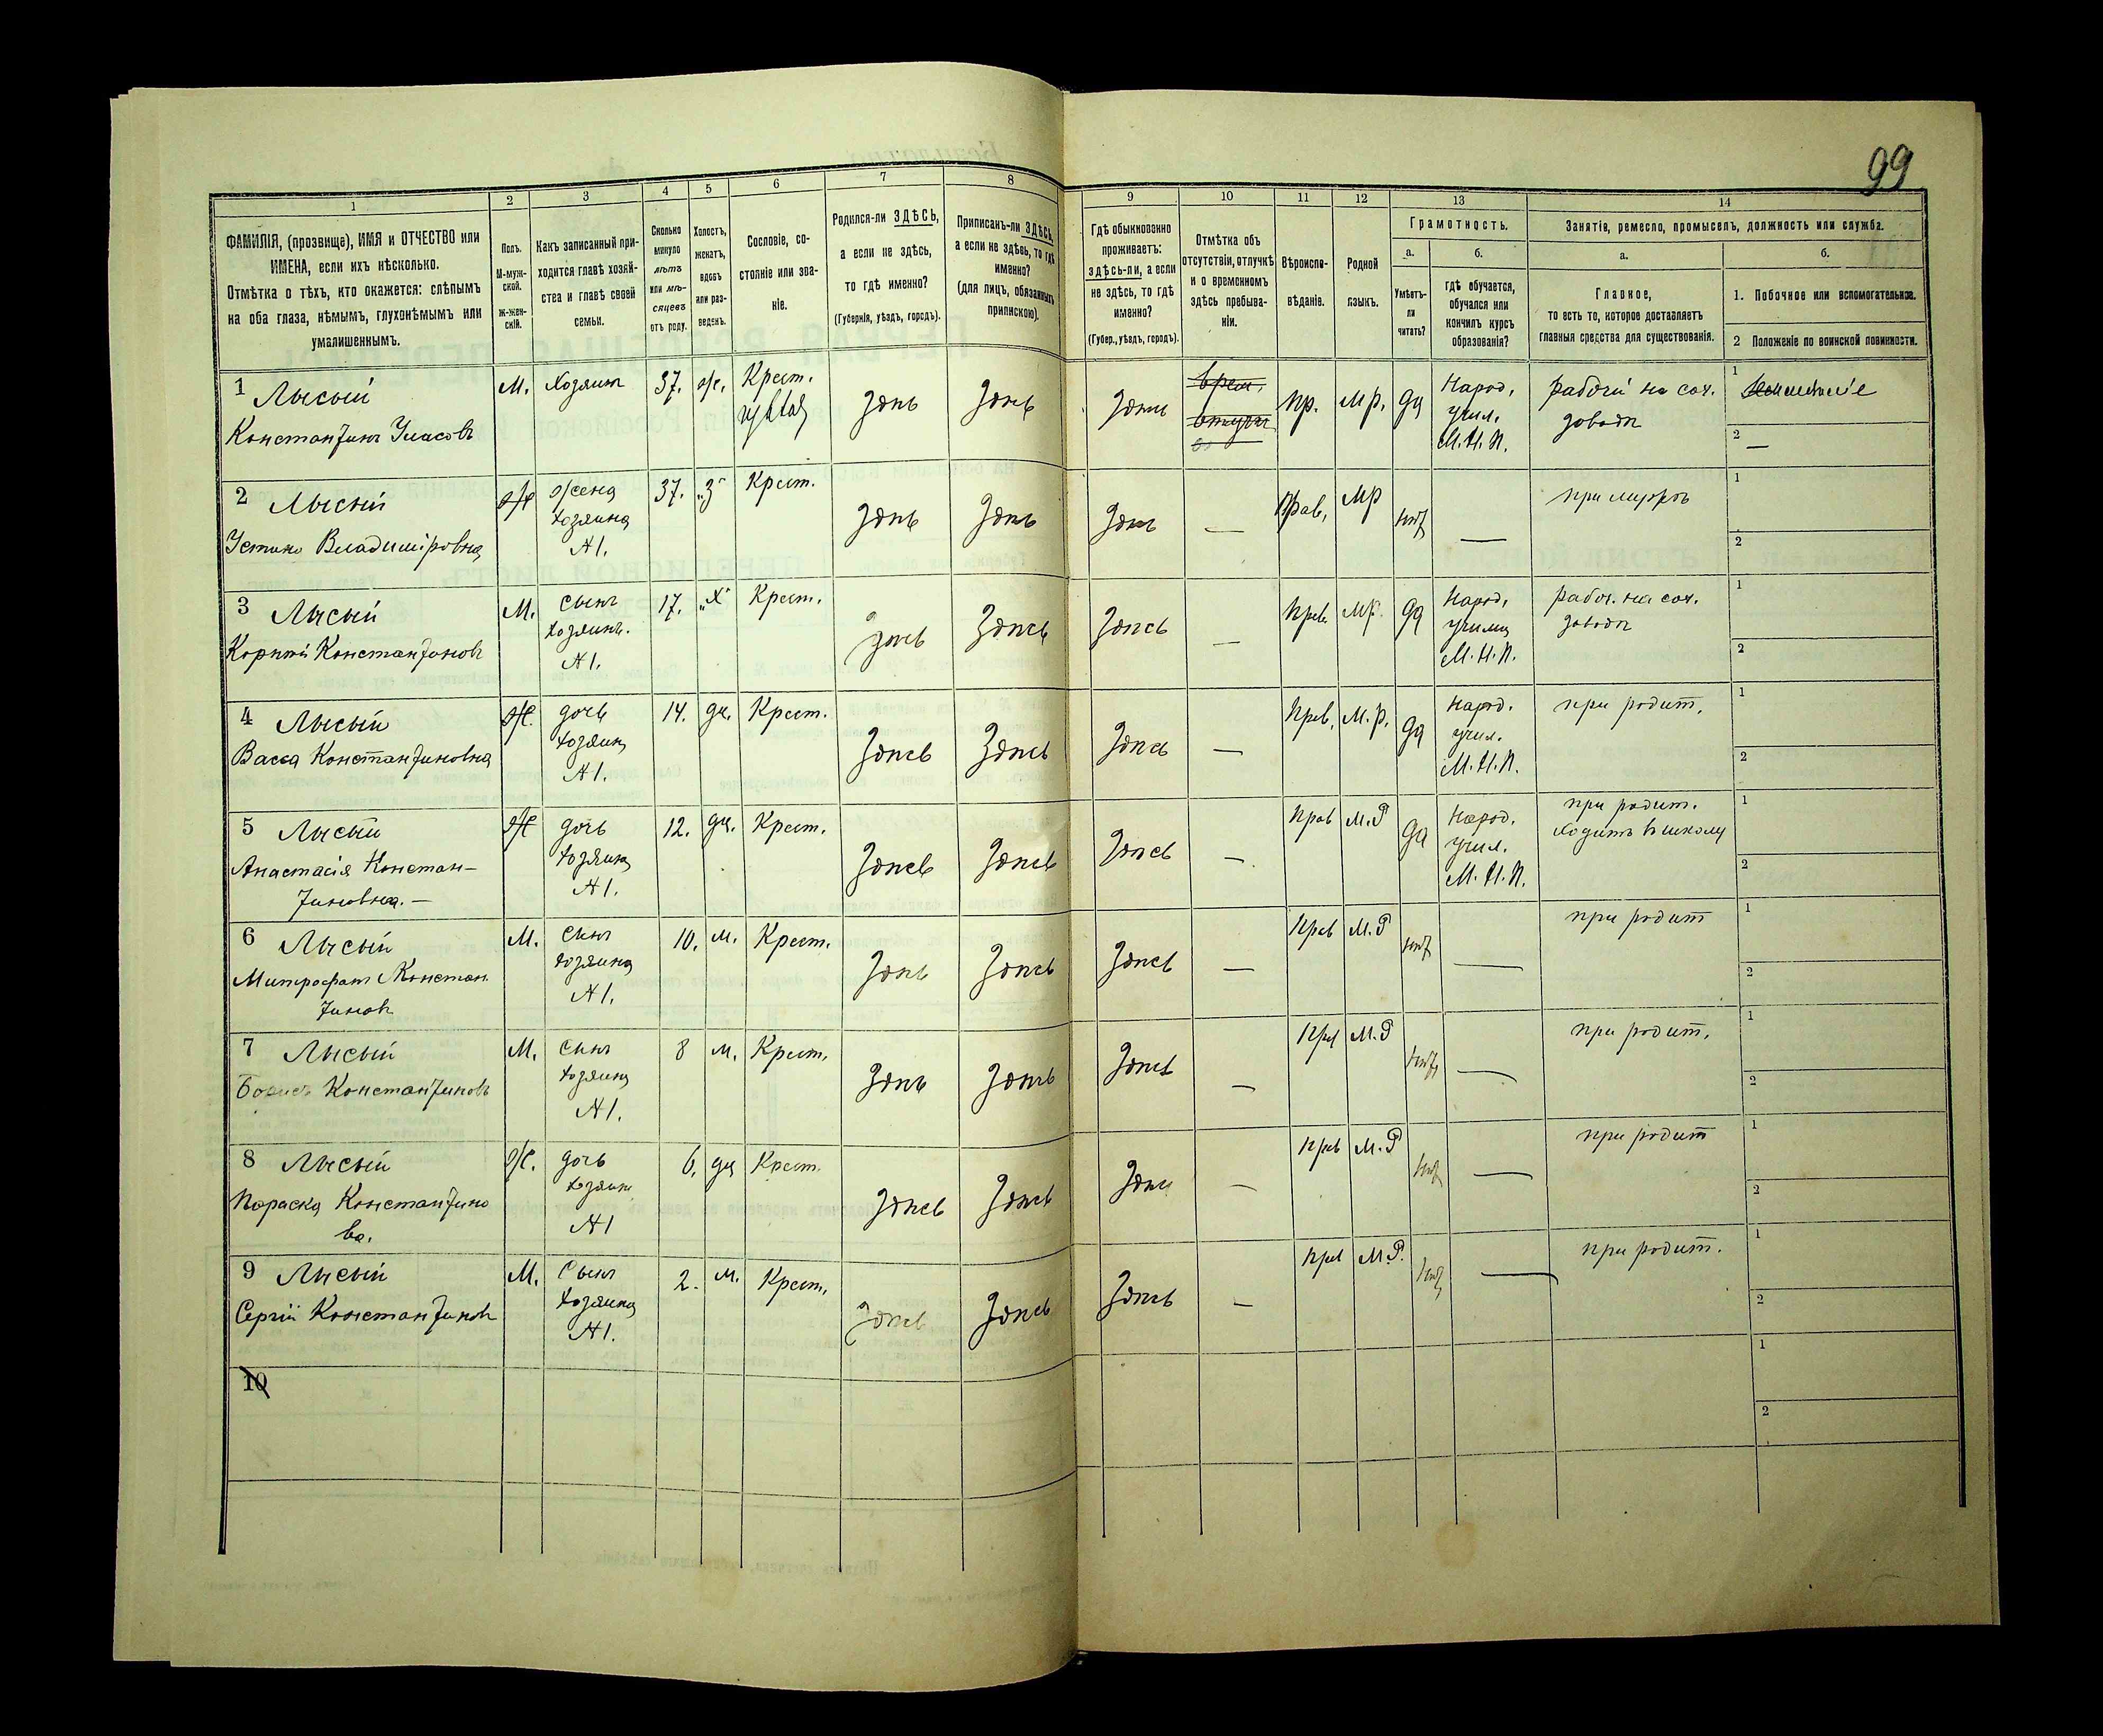 99
1
2
3
4
5
6
7
8
9
10
11
12
13
14
ФАМИЛІЯ, (прозвище), ИМЯ и ОТЧЕСТВО или
ИМЕНА, если ихъ нѣсколько.
Отмѣтка о тѣхъ, кто окажется: слѣпымъ
на оба глаза, нѣмымъ, глухонѣмымъ или
умалишеннымъ.
Полъ.
М-муж-
ской.
Ж-жен-
скій.
Какъ записанный при-
ходится главѣ хозяй-
ства и главѣ своей
семьи.
Сколько
минуло
лѣтъ
или мѣ-
сяцевъ
отъ роду.
Холостъ,
женатъ,
вдовъ
или раз-
веденъ.
Сословіе, со-
стояніе или зва-
ніе.
Родился-ли ЗДѢСЬ,
а если не здѣсь,
то гдѣ именно?
(Губернія, уѣздъ, городъ).
Приписанъ-ли ЗДѢСЬ,
а если не здѣсь, то гдѣ
именно?
(для лицъ, обязанныхъ
припискою).
Гдѣ обыкновенно
проживаетъ:
здѣсь-ли, а если
не здѣсь, то гдѣ
именно?
(Губер., уѣздъ, городъ).
Отмѣтка объ
отсутствіи, отлучкѣ
и о временномъ
здѣсь пребыва-
ніи.
Вѣроиспо-
вѣданіе.
Родной
языкъ.
Грамотность.
а.
Умѣетъ-
ли
читать?
б.
гдѣ обучается,
обучался или
кончилъ курсъ
образованія?
Занятіе, ремесло, промыселъ, должность или служба.
а.
Главное,
то есть то, которое доставляетъ
главныя средства для существованія.
б.
1. Побочное или вспомогательное.
2 Положеніе по воинской повинности.
1 Лысый
Константинъ
М.
Хозяинъ
37.
ж.
Крест.
здѣсь
Здѣсь
Здѣсь
врем.
пр.
мр.
да
Народ.
учил.
М.Н.П.
рабочій на сах.
заводѣ
1
2 —
2 Лысый
Устинья Владиміровна
Ж
жена
хозяина
№1.
37.
„З"
Крест.
Здѣсь
Здѣсь
Здѣсь
—
Прав.
мр
нѣт
—
при мужѣ
1
2
3 Лысый
Корній Константиновъ
М.
сынъ
хозяинъ.
№1.
17.
„Х"
Крест.
Здѣсь
Здѣсь
Здѣсь
—
прав.
мр.
да
Народ.
училищ
М.Н.П.
рабоч. на сах.
заводѣ
1
2
4 Лысый
Васса Константиновна
Ж.
дочь
хозяина
№1.
14.
дв.
Крест.
Здѣсь
Здѣсь
Здѣсь
—
прав.
м.р.
да
народ.
учил.
М.Н.П.
при родит.
1
2
5 Лысый
Анастасія Констан-
тиновна. —
Ж
дочь
хозяина
№1.
12.
дв.
Крест.
Здѣсь
Здѣсь
Здѣсь
—
прав
м.р
да
Народ.
учил.
М.Н.П.
при родит.
ходитъ въ школу
1
2
6 Лысый
Митрофанъ Констан
тиновъ
М.
сынъ
хозяина
№1.
10.
м.
Крест.
Здѣсь
Здѣсь
Здѣсь
—
прав
М.Р
нѣт
—
при родит
1
2
7 Лысый
Борисъ Константиновъ
М.
сынъ
хозяина
№1.
8
м.
Крест.
Здѣсь
Здѣсь
Здѣсь
—
прав
М.Р
нѣт
—
при родит.
1
2
8 Лысый
Параска Константино
ва.
Ж.
дочь
хозяин
№1
6.
дв
Крест.
Здѣсь
Здѣсь
Здѣсь
—
прав
М.Р
нѣт
—
при родит
1
2
9 Лысый
Сергій Константиновъ
М.
Сынъ
хозяина
№1.
2.
м.
Крест.
Здѣсь
Здѣсь
Здѣсь
—
прав
М.Р.
нѣт
—
при родит.
1
2
10
1
2